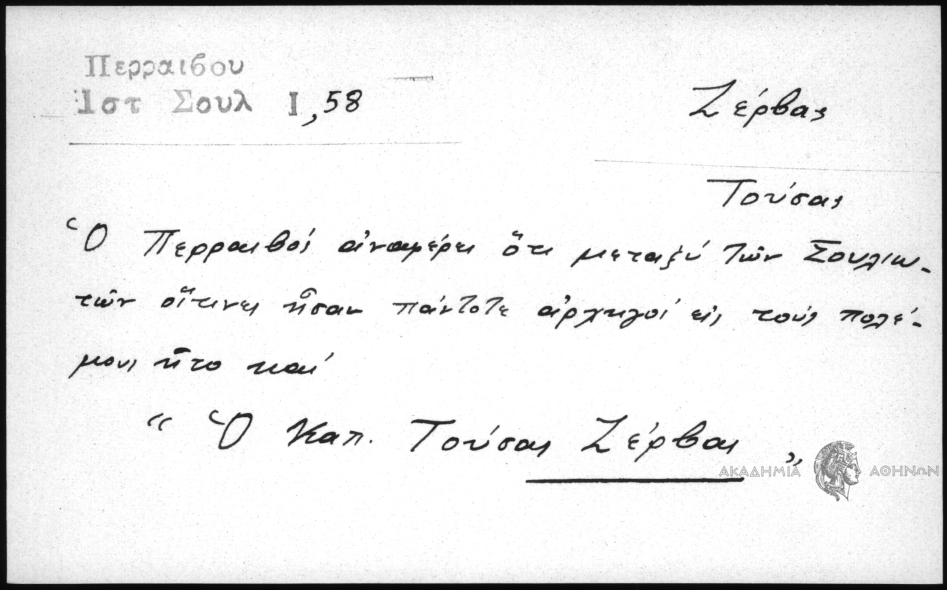 Περραιβου
Ιστ Σουλ Ι,58
Ζέρβας
Τούσας
Ὁ Περραιβός ἀναφέρει ὅτι μεταξύ τῶν Σουλιω-
τῶν οἵτινες ἦσαν πάντοτε ἀρχηγοί εἰς τούς πολέ-
μους ἦτο καί
“ Ὁ Καπ. Τούσας Ζέρβας „
ΑΚΑΔΗΜΙΑ ΑΘΗΝΩΝ